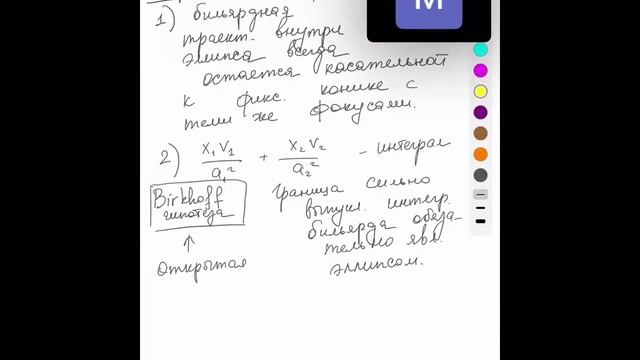 1) бильярдная
траект. внутри
эллипса всегда
остается касательной
к фикс. конике с
теми же фокусами.
2) x₁v₁/a₁² + x₂v₂/a₂² - интеграл
Birkhoff гипотеза
граница сильно
выпукл. интегр.
бильярда обяза-
тельно явл.
эллипсом.
↑
открытая
M